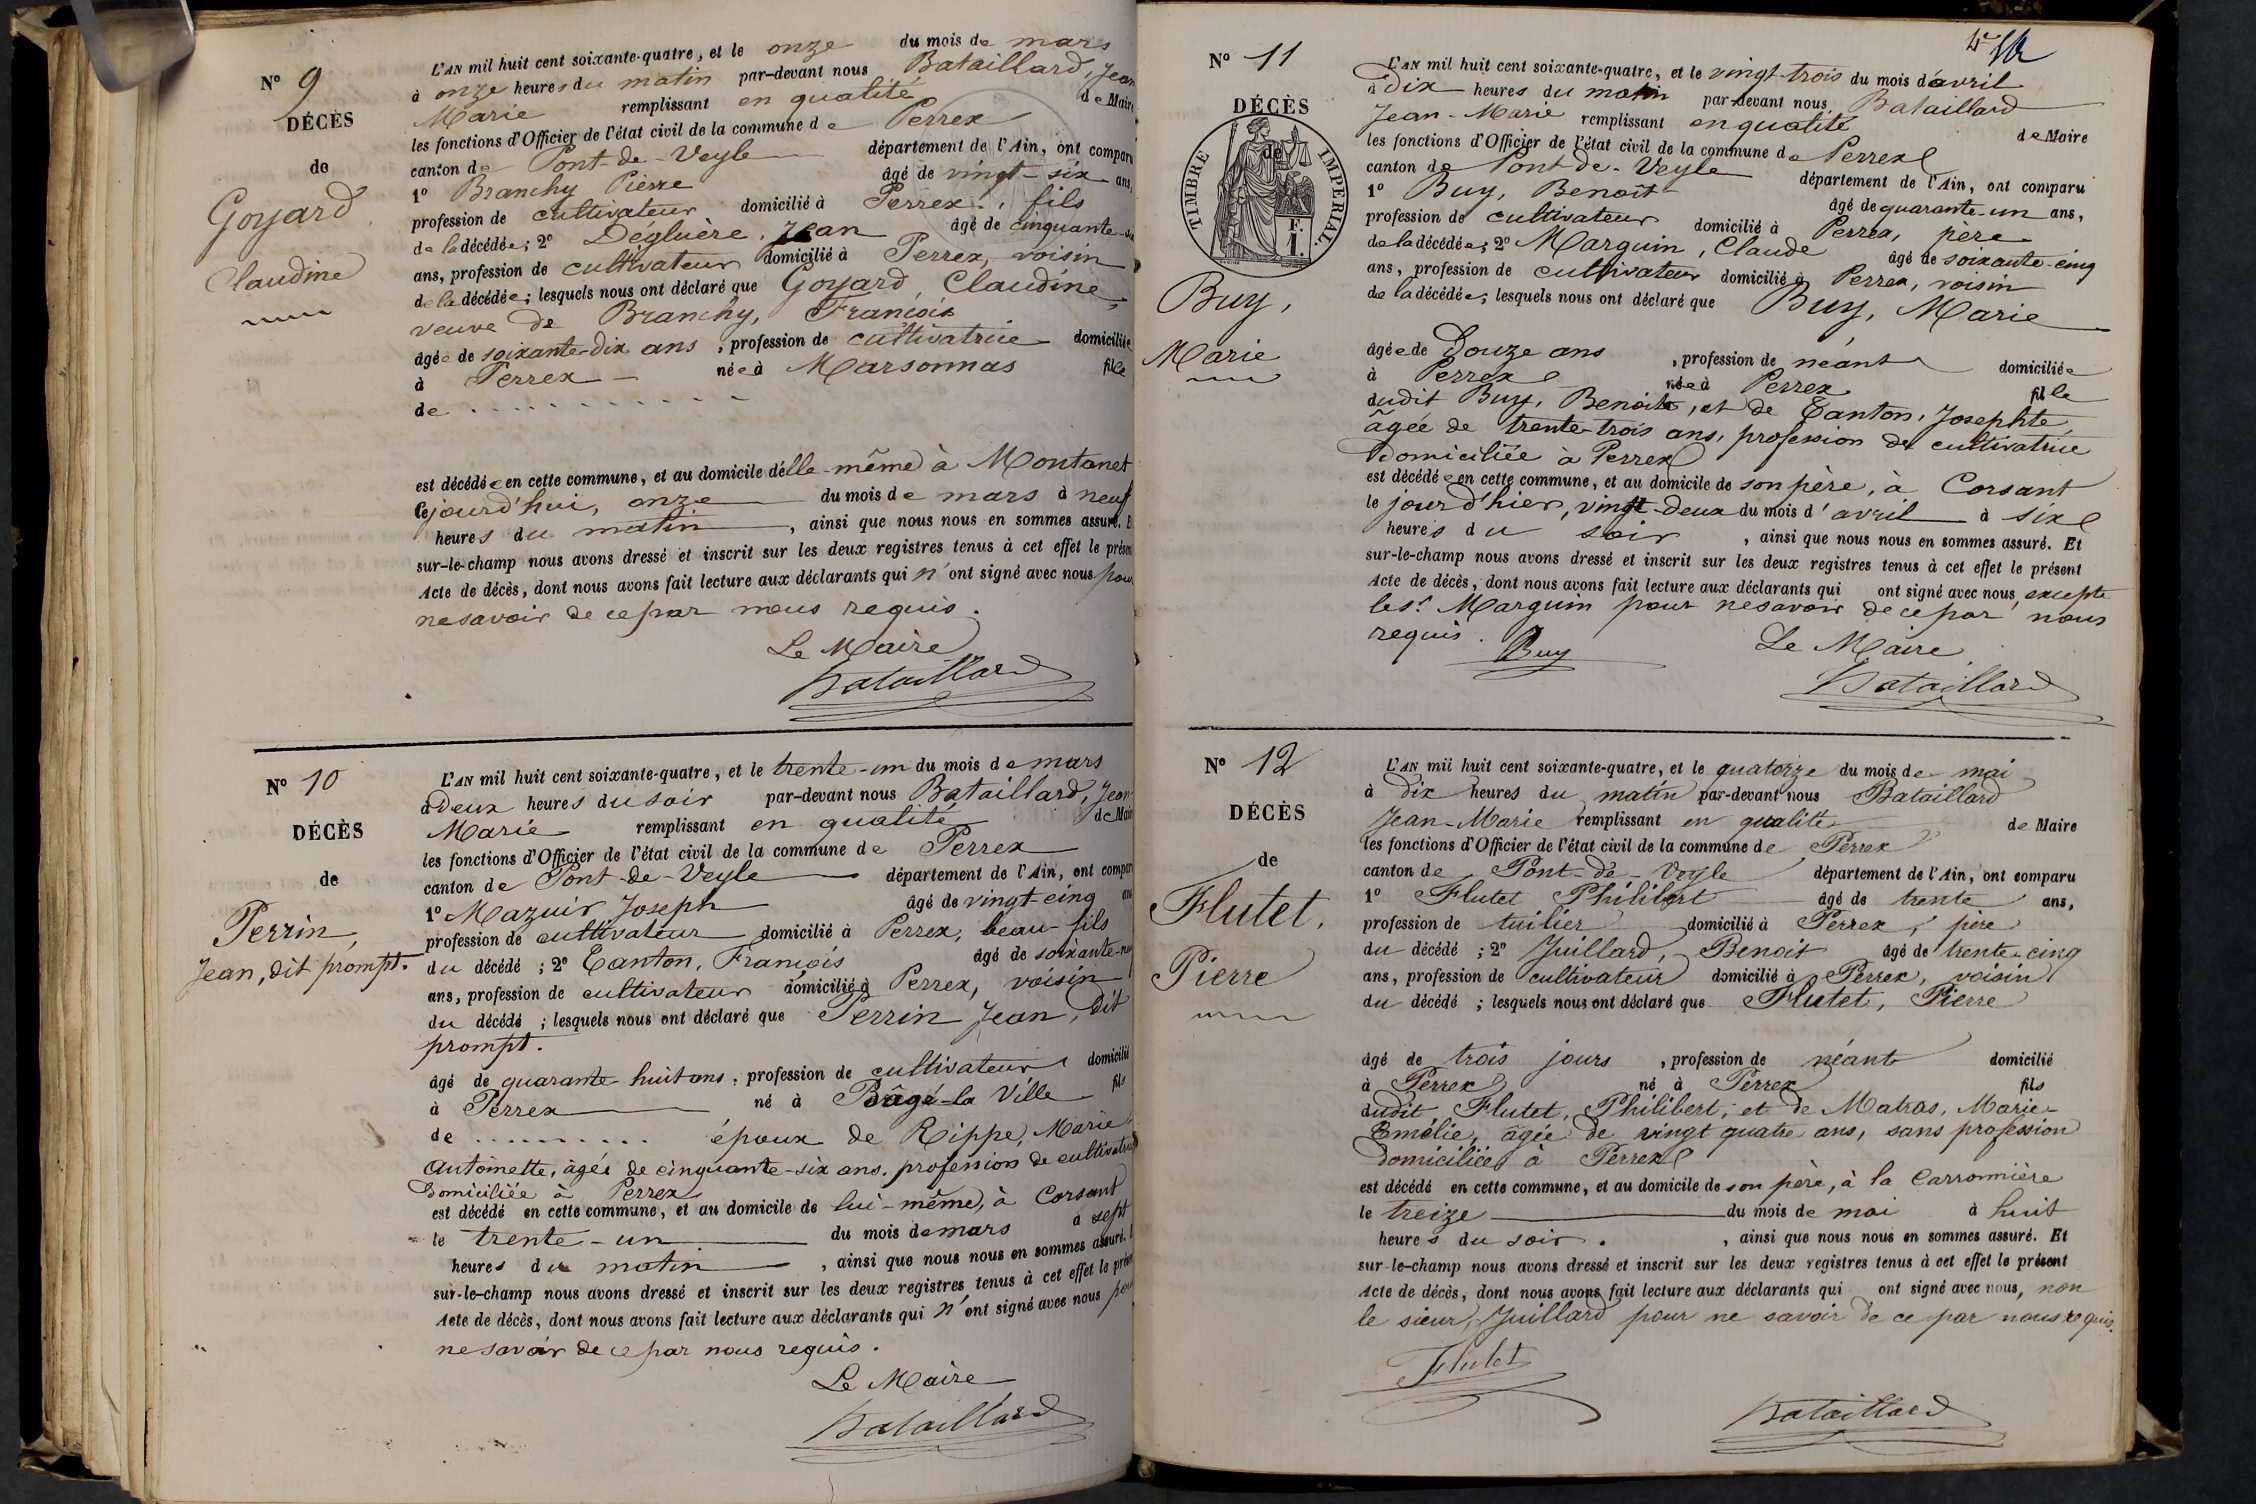 Nº 9
DÉCÈS
de
Goyard
Claudine
L'AN mil huit cent soixante-quatre, et le onze du mois de mars
à onze heures du matin par-devant nous Bataillard, Jean
Marie remplissant en qualité de Maire
les fonctions d'Officier de l'état civil de la commune de Perrex
canton de Pont-de-Veyle département de l'Ain, ont comparu
1º Branchy Pierre âgé de vingt-six ans,
profession de cultivateur domicilié à Perrex, fils
de la décédée; 2º Dégluère, Jean âgé de cinquante-
ans, profession de cultivateur domicilié à Perrex, voisin
de la décédée; lesquels nous ont déclaré que Goyard, Claudine,
veuve de Branchy, François
âgée de soixante-dix ans, profession de cultivatrice domiciliée
à Perrex née à Marsonnas fille
de . . . . . . . . . . . .
est décédée en cette commune, et au domicile d'elle-même à Montanet
ce jourd'hui, onze du mois de mars à neuf
heures du matin, ainsi que nous nous en sommes assuré. E
sur-le-champ nous avons dressé et inscrit sur les deux registres tenus à cet effet le présen
Acte de décès, dont nous avons fait lecture aux déclarants qui n'ont signé avec nous pour
ne savoir de ce par nous requis.
Le Maire
Bataillard
Nº 10
DÉCÈS
de
Perrin,
Jean, dit prompt.
L'AN mil huit cent soixante-quatre, et le trente-un du mois de mars
à deux heures du soir par-devant nous Bataillard, Jean
Marie remplissant en qualité de Mair
les fonctions d'Officier de l'état civil de la commune de Perrex
canton de Pont-de-Veyle département de l'Ain, ont compar
1º Mazuir Joseph âgé de vingt-cinq an
profession de cultivateur domicilié à Perrex, beau-fils
du décédé; 2º Tanton, François âgé de soixante-
ans, profession de cultivateur domicilié à Perrex, voisin
du décédé; lesquels nous ont déclaré que Perrin Jean, dit
prompt.
âgé de quarante-huit ans, profession de cultivateur domicilié
à Perrex né à Bâgé-la Ville fils
de . . . . . . . . . . époux de Rippe, Marie
Antoinette, âgée de cinquante-six ans, profession de cultivatrice
domiciliée à Perrex
est décédé en cette commune, et au domicile de lui-même, à Corsant
le trente-un du mois de mars à sept
heures du matin, ainsi que nous nous en sommes assuré. E
sur-le-champ nous avons dressé et inscrit sur les deux registres tenus à cet effet le prése
Acte de décès, dont nous avons fait lecture aux déclarants qui n'ont signé avec nous pour
ne savoir de ce par nous requis.
Le Maire
Bataillard
Nº 11
DÉCÈS
de
TIMBRE IMPERIAL.
1 F.
Buy,
Marie
L'AN mil huit cent soixante-quatre, et le vingt-trois du mois d'avril
à dix heures du matin par-devant nous Bataillard
Jean-Marie remplissant en qualité de Maire
les fonctions d'Officier de l'état civil de la commune de Perrex
canton de Pont-de-Veyle département de l'Ain, ont comparu
1º Buy, Benoit âgé de quarante-un ans,
profession de cultivateur domicilié à Perrex, père
de la décédée; 2º Marguin, Claude âgé de soixante-cinq
ans, profession de cultivateur domicilié à Perrex, voisin
de la décédée; lesquels nous ont déclaré que Buy, Marie
âgée de douze ans, profession de néant domiciliée
à Perrex née à Perrex fille
dudit Buy, Benoit, et de Tanton, Josephte,
âgée de trente-trois ans, profession de cultivatrice
domiciliée à Perrex
est décédée en cette commune, et au domicile de son père, à Corsant
le jour d'hier, vingt-deux du mois d'avril à six
heures du soir, ainsi que nous nous en sommes assuré. Et
sur-le-champ nous avons dressé et inscrit sur les deux registres tenus à cet effet le présent
Acte de décès, dont nous avons fait lecture aux déclarants qui ont signé avec nous, excepte
le sr. Marguin pour ne savoir de ce par nous
requis.
Buy
Le Maire
Bataillard
Nº 12
DÉCÈS
de
Flutet,
Pierre
L'AN mil huit cent soixante-quatre, et le quatorze du mois de mai
à dix heures du matin par-devant nous Bataillard
Jean-Marie remplissant en qualité de Maire
les fonctions d'Officier de l'état civil de la commune de Perrex
canton de Pont-de-Veyle département de l'Ain, ont comparu
1º Flutet Philibert âgé de trente ans,
profession de tuilier domicilié à Perrex, père
du décédé; 2º Juillard, Benoit âgé de trente-cinq
ans, profession de cultivateur domicilié à Perrex, voisin
du décédé; lesquels nous ont déclaré que Flutet, Pierre
âgé de trois jours, profession de néant domicilié
à Perrex né à Perrex fils
dudit Flutet, Philibert, et de Matras, Marie-
Emélie, âgée de vingt quatre ans, sans profession
domiciliée à Perrex
est décédé en cette commune, et au domicile de son père, à la Carronnière
le treize du mois de mai à huit
heures du soir. , ainsi que nous nous en sommes assuré. Et
sur-le-champ nous avons dressé et inscrit sur les deux registres tenus à cet effet le présent
Acte de décès, dont nous avons fait lecture aux déclarants qui ont signé avec nous, non
le sieur Juillard pour ne savoir de ce par nous requis.
Flutet
Bataillard